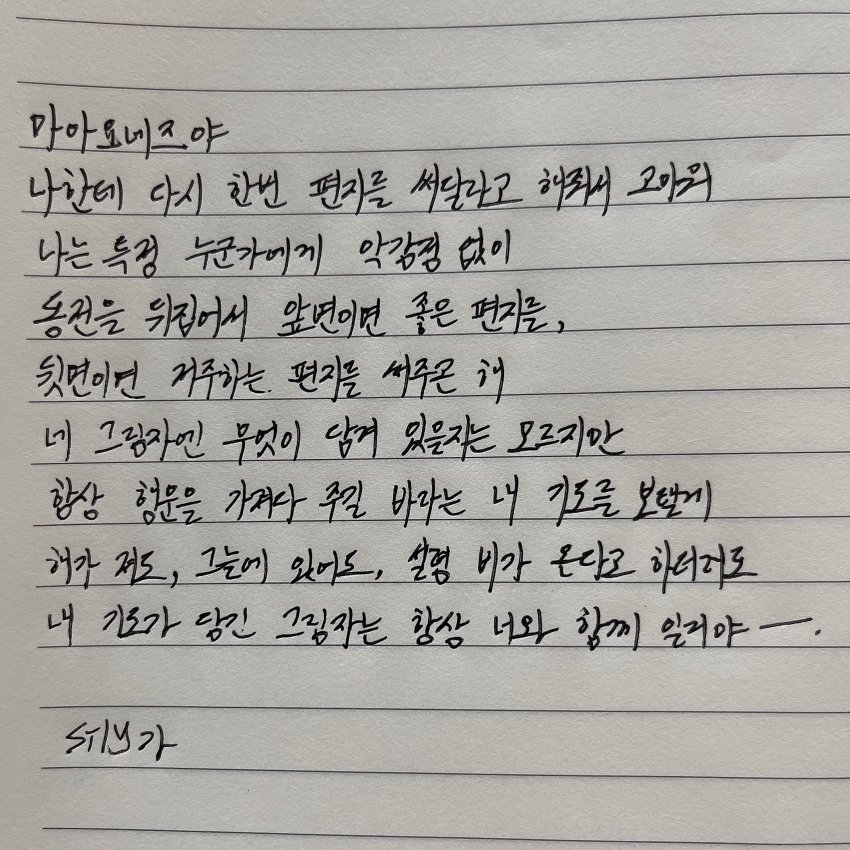 마아요네즈야
나한테 다시 한번 편지를 써달라고 해줘서 고마워
나는 특정 누군가에게 악감정 없이
동전을 뒤집어서 앞면이면 좋은 편지를,
뒷면이면 저주하는 편지를 써주곤 해
네 그림자엔 무엇이 담겨 있을지는 모르지만
항상 행운을 가져다 주길 바라는 내 기도를 보탤게
해가 져도, 그늘에 있어도, 설령 비가 온다고 하더라도
내 기도가 담긴 그림자는 항상 너와 함께 일거야 —.
가